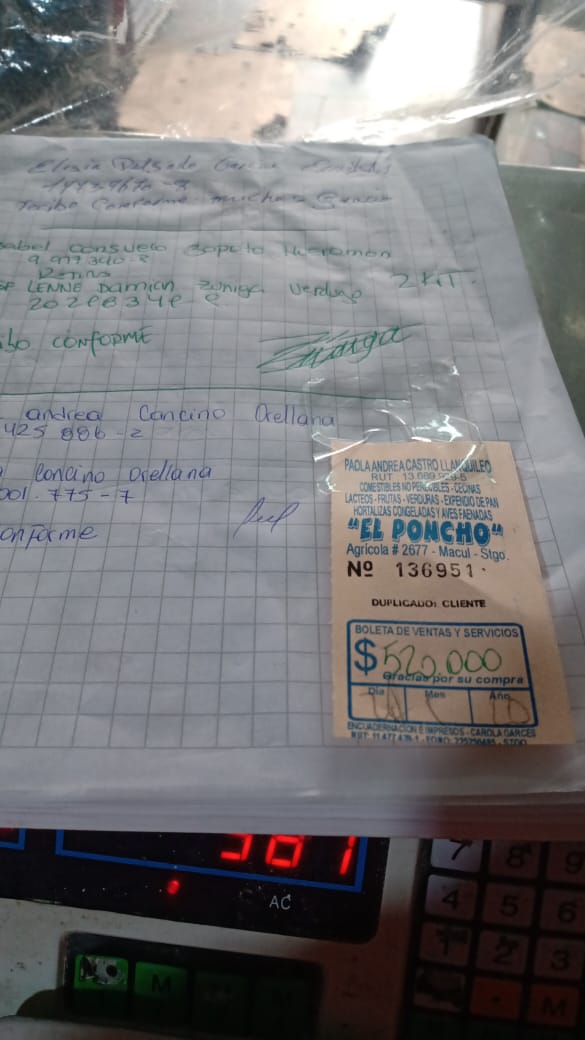 Elosia Delgado Garcia
Recibo Conforme muchas Gracias
sabel consuelo
9.977340-8
LENNE Damian Zuniga Verdugo 2 KIT.
ibo CONFORME
Zúñiga
andrea Cancino Orellana
425 886-2
Cancino Orellana
001.775-7
onforme
PAOLA ANDREA CASTRO LLANQUILEO
RUT 13.069.929-5
COMESTIBLES NO PERECIBLES - CECINAS
LACTEOS - FRUTAS - VERDURAS - EXPENDIO DE PAN
HORTALIZAS CONGELADAS Y AVES FAENADAS
"EL PONCHO"
Agrícola # 2677 - Macul - Stgo.
Nº 136951
DUPLICADO: CLIENTE
BOLETA DE VENTAS Y SERVICIOS
$ 520.000
Gracias por su compra
Dia Mes Año
ENCUADERNACION E IMPRESOS - CAROLA GARCES
381
AC
7 8 9
4 5 6
1 2 3
M
M